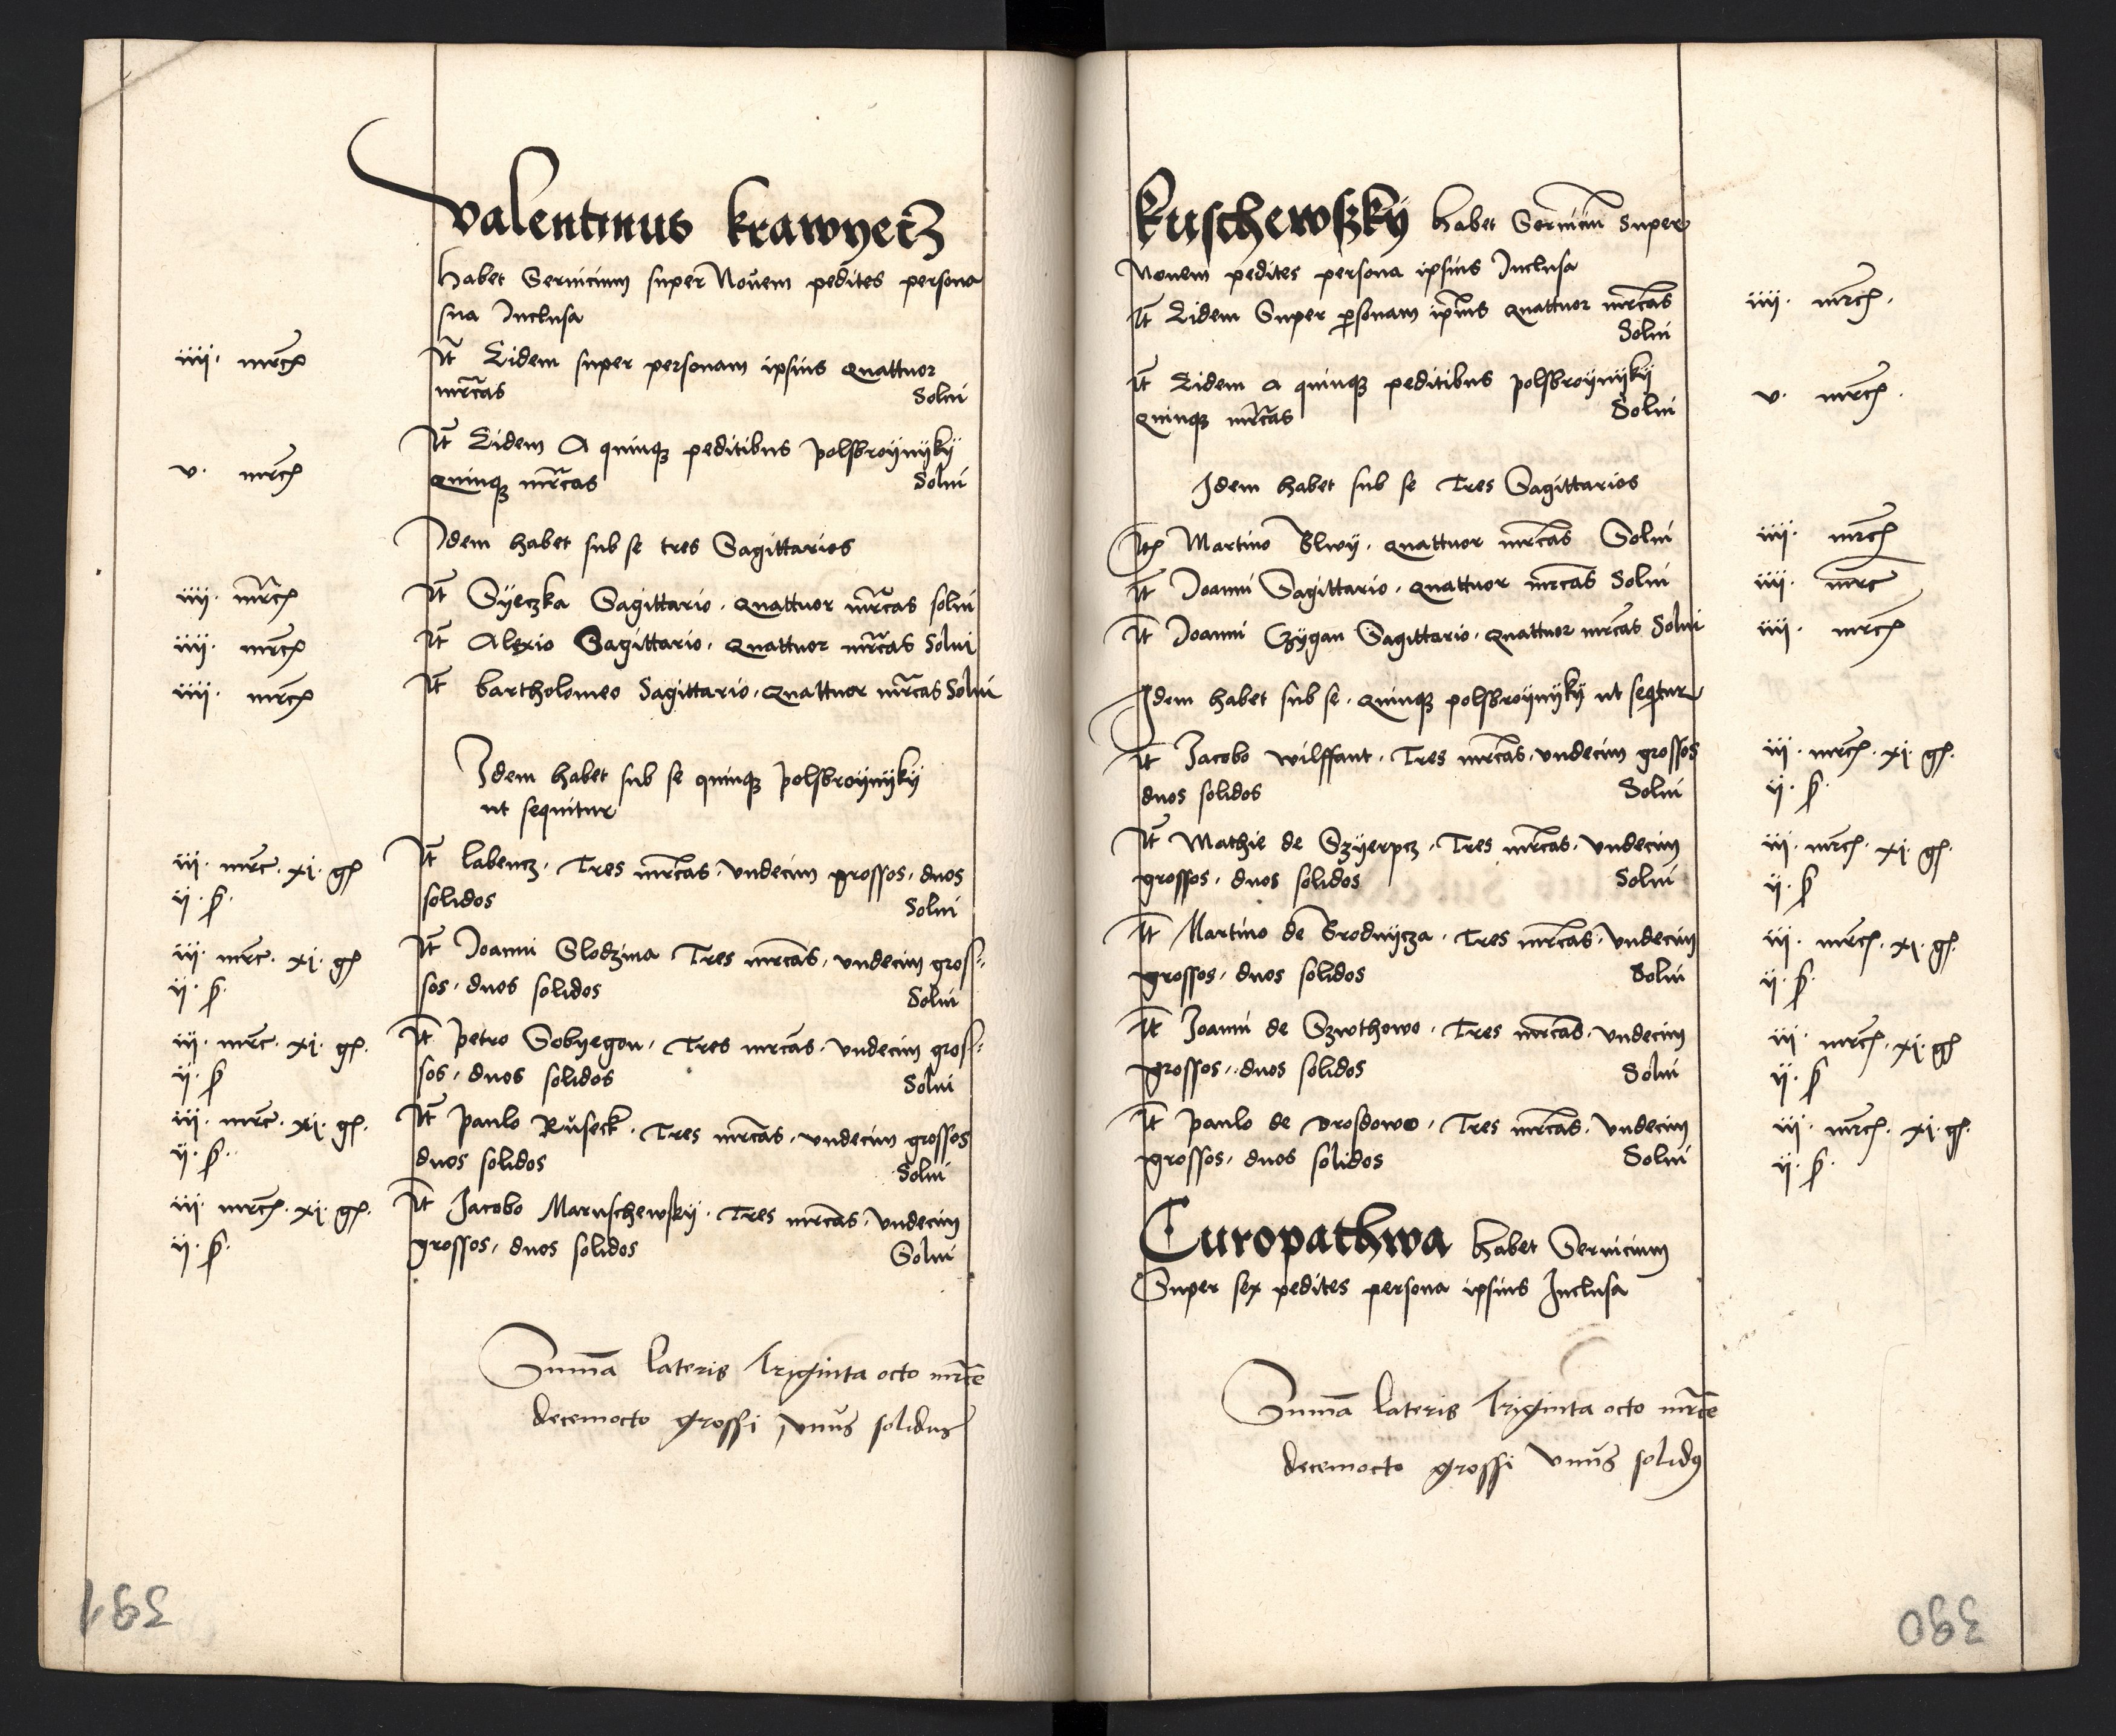 Valentinus krawyecz
habet Servicium super Novem pedites persona
sua Inclusa
iiii. mrc It Eidem super personam ipsius quattuor
mrcas Solui
v. mrc It Eidem A quinq peditibus polsbroÿnÿkÿ
quinq mrcas Solui
Idem habet sub se tres Sagittarios
iiii. mrc It Syeczka Sagittario. quattuor mrcas solui
iiii. mrc It Alexio Sagittario. quattuor mrcas Solui
iiii. mrc It bartholomeo Sagittario. quattuor mrcas Solui
Idem habet sub se quinq polsbroÿnÿkÿ
ut sequitur
iii. mrc. xi. gr It labencz. Tres mrcas. undecim grossos. duos
ii. s. solidos Solui
iii. mrc. xi. gr It Joanni Slodzina Tres mrcas. undecim gros
ii. s. sos. duos solidos Solui
iii. mrc. xi. gr. It petro Sobyegon. Tres mrcas. undecim gros
ii. s sos. duos solidos Solui
iii. mrc. xi. gr. It paulo Ruseck. Tres mrcas. undecim grossos
ii. s. duos solidos Solui
iii. mrc. xi. gr. It Jacobo Maruschewskÿ. Tres mrcas. undecim
ii. s. grossos. duos solidos Solui
Summa lateris Triginta octo mrce
decemocto grossi unus solidus
391
kuschewszkÿ habet Servicium super
Novem pedites persona ipsius Inclusa
It Eidem Super personam ipsius quattuor mrcas iiii. mrc.
Solui
It Eidem a quinq peditibus polsbroÿnÿkÿ v. mrc.
quinq mrcas Solui
Idem habet sub se Tres Sagittarios
It Martino Blwÿ. quattuor mrcas Solui iiii. mrc
It Joanni Sagittario. quattuor mrcas Solui iiii. mrc
It Joanni Czÿgan Sagittario. quattuor mrcas Solui iiii. mrc
Idem habet sub se. quinq polsbroÿnÿkÿ ut seqtur
It Jacobo wilffant. Tres mrcas. undecim grossos iii. mrc. xi. gr.
duos solidos Solui ii. s.
It Mathie de Szyerpcz. Tres mrcas. undecim iii. mrc. xi. gr.
grossos. duos solidos Solui ii. s
It Martino de Brodnÿcza. Tres mrcas. undecim iii. mrc. xi. gr.
grossos. duos solidos Solui ii. s.
It Joanni de Szwthowo. Tres mrcas. undecim iii. mrc. xi. gr
grossos. duos solidos Solui ii. s
It paulo de drosdowo. Tres mrcas. undecim iii. mrc. xi. gr.
grossos. duos solidos Solui ii. s.
Curopathwa habet Servicium
Super sex pedites persona ipsius Inclusa
Summa lateris Triginta octo mrce
decemocto grossi unus solidus
390